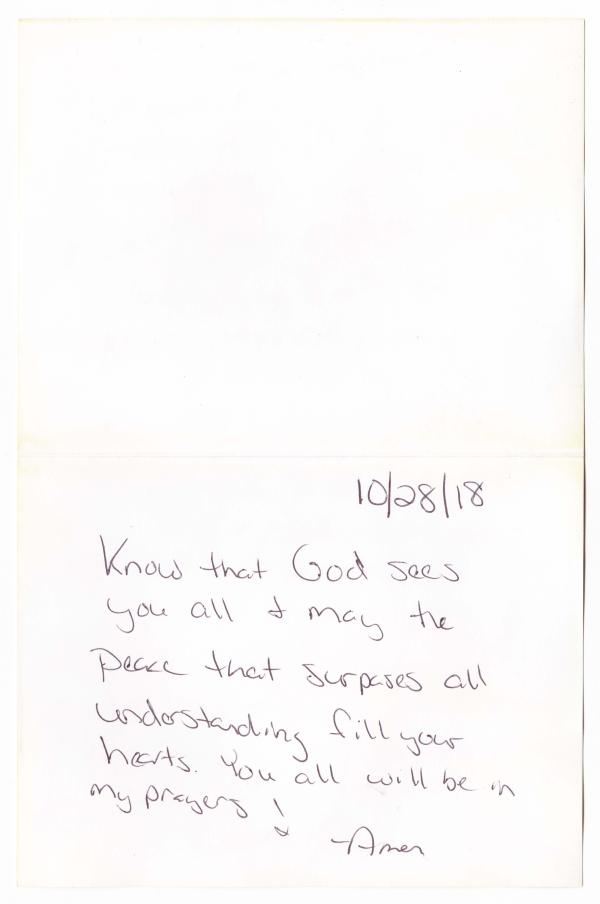 10/28/18
Know that God sees
you all & may the
peace that surpases all
understanding fill your
hearts. You all will be in
my prayers!
-Amen